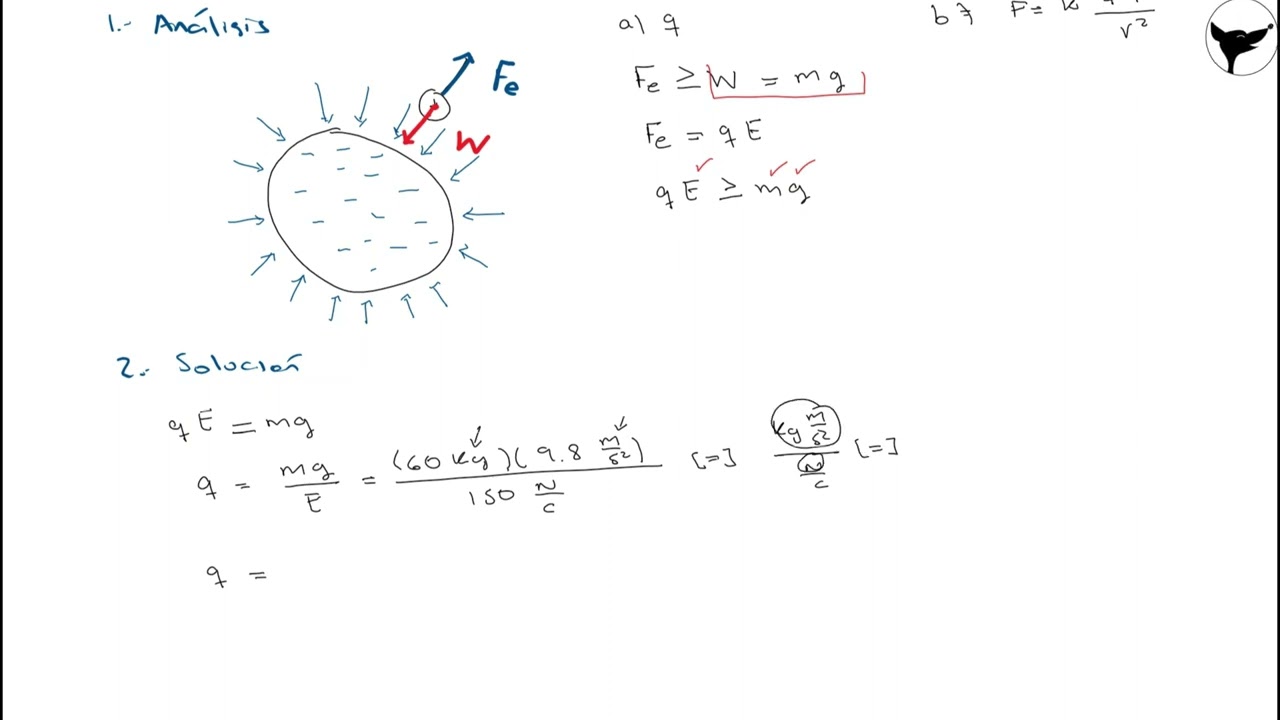 1.- Análisis
Fe
W
a) q
Fe ≥ W = mg
Fe = qE
qE ≥ mg
b) F = k
r²
2.- Solución
qE = mg
q = mg/E = (60 kg)(9.8 m/s²)/150 N/C [=] kg m/s² / N/C [=]
q =